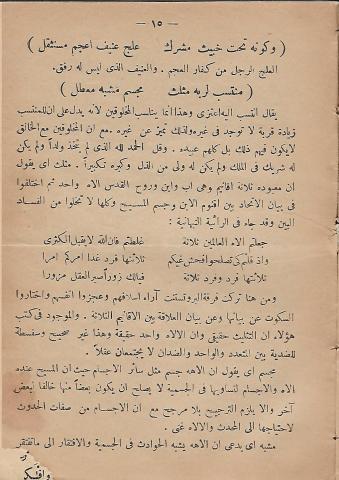 — ١٥ —
( وكونه تحت خبيث مشرك علج عنيف اعجم مستثقل )
العلج الرجل من كفار العجم . والعنيف الذي ليس له رفق.
( منتسب لربه مثلث مجسم مشبه معطل )
يقال انتسب اليه اعتزى وهذا انما يناسب المخلوقين لأنه يدل على ان للمنتسب
زيادة قربة لا توجد في غيره ولذلك تميز عن غيره . مع ان المخلوقين مع الخالق
لا يكون فيهم ذلك بل كلهم عبيده . وقل الحمد لله الذي لم يتخذ ولداً ولم يكن
له شريك في الملك ولم يكن له ولى من الذل وكبره تكبيراً . مثلث اى يقول
ان معبوده ثلاثة اقانيم وهى اب وابن وروح القدس الاه واحد ثم اختلفوا
في بيان الاتحاد بين اقنوم الابن وجسم المسيح وكلها لا تخلوا من الفساد
البين وقد جاء في الرائية النبهانية :
جعلتم الاه العالمين ثلاثة غلطتم فان الله لا يقبل الكثرى
ثلاثتها فرد غدا امركم امرا
ثلاثتها فرد وفرد ثلاثة فيالك زور أصبر العقل مزورا
ومن هنا تركت فرقة البروتستنت آراء اسلافهم وعجزوا انفسهم واختاروا
السكوت عن بيانها وعن بيان العلاقة بين الاقانيم الثلاثة . والموجود في كتب
هؤلاء ان التثليث حقيقي وان الالاه واحد حقيقة وهذا غير صحيح وسفسطة
للضدية بين التعدد والواحد والضدان لا يجتمعان عقلاً .
مجسم اى يقول ان الاهه جسم مثل سائر الاجسام حيث ان المسيح عنده
الاه والاجسام لتساويها في الجسمية لا يصلح ان يكون بعضاً منها خالقا لبعض
آخر والا يلزم الترجيح بلا مرجح مع ان الاجسام من صفات الحدوث
لاحتياجها الى المحدث والالاه غنى .
مشبه اى يدعى ان الاهه يشبه الحوادث في الجسمية والافتقار الى ما تفتقر